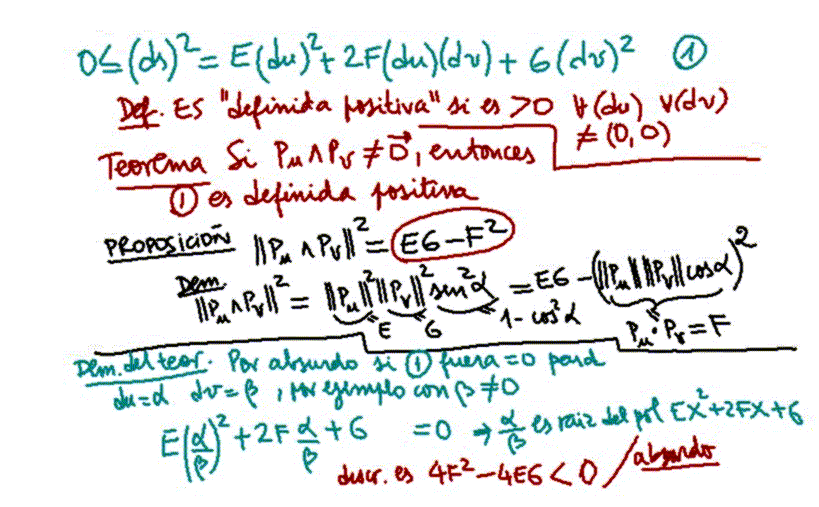 0≤(ds)² = E(du)²+2F(du)(dv)+G(dv)² ①
Def. ES "definida positiva" si es >0 ∀(du) ∨(dv)
≠(0,0)
Teorema Si Pu∧Pv≠0⃗, entonces
① es definida positiva
PROPOSICIÓN ||Pu∧Pv||² = EG-F²
Dem
||Pu∧Pv||² = ||Pu||²||Pv||² sin²α = EG-(||Pu||||Pv||cosα)²
=E =G =1-cos²α Pu·Pv=F
Dem. del teor. Por absurdo si ① fuera =0 para
du=α dv=β, por ejemplo con β≠0
E(α/β)²+2F α/β+G =0 → α/β es raiz del pol EX²+2FX+G
discr. es 4F²-4EG<0 / absurdo